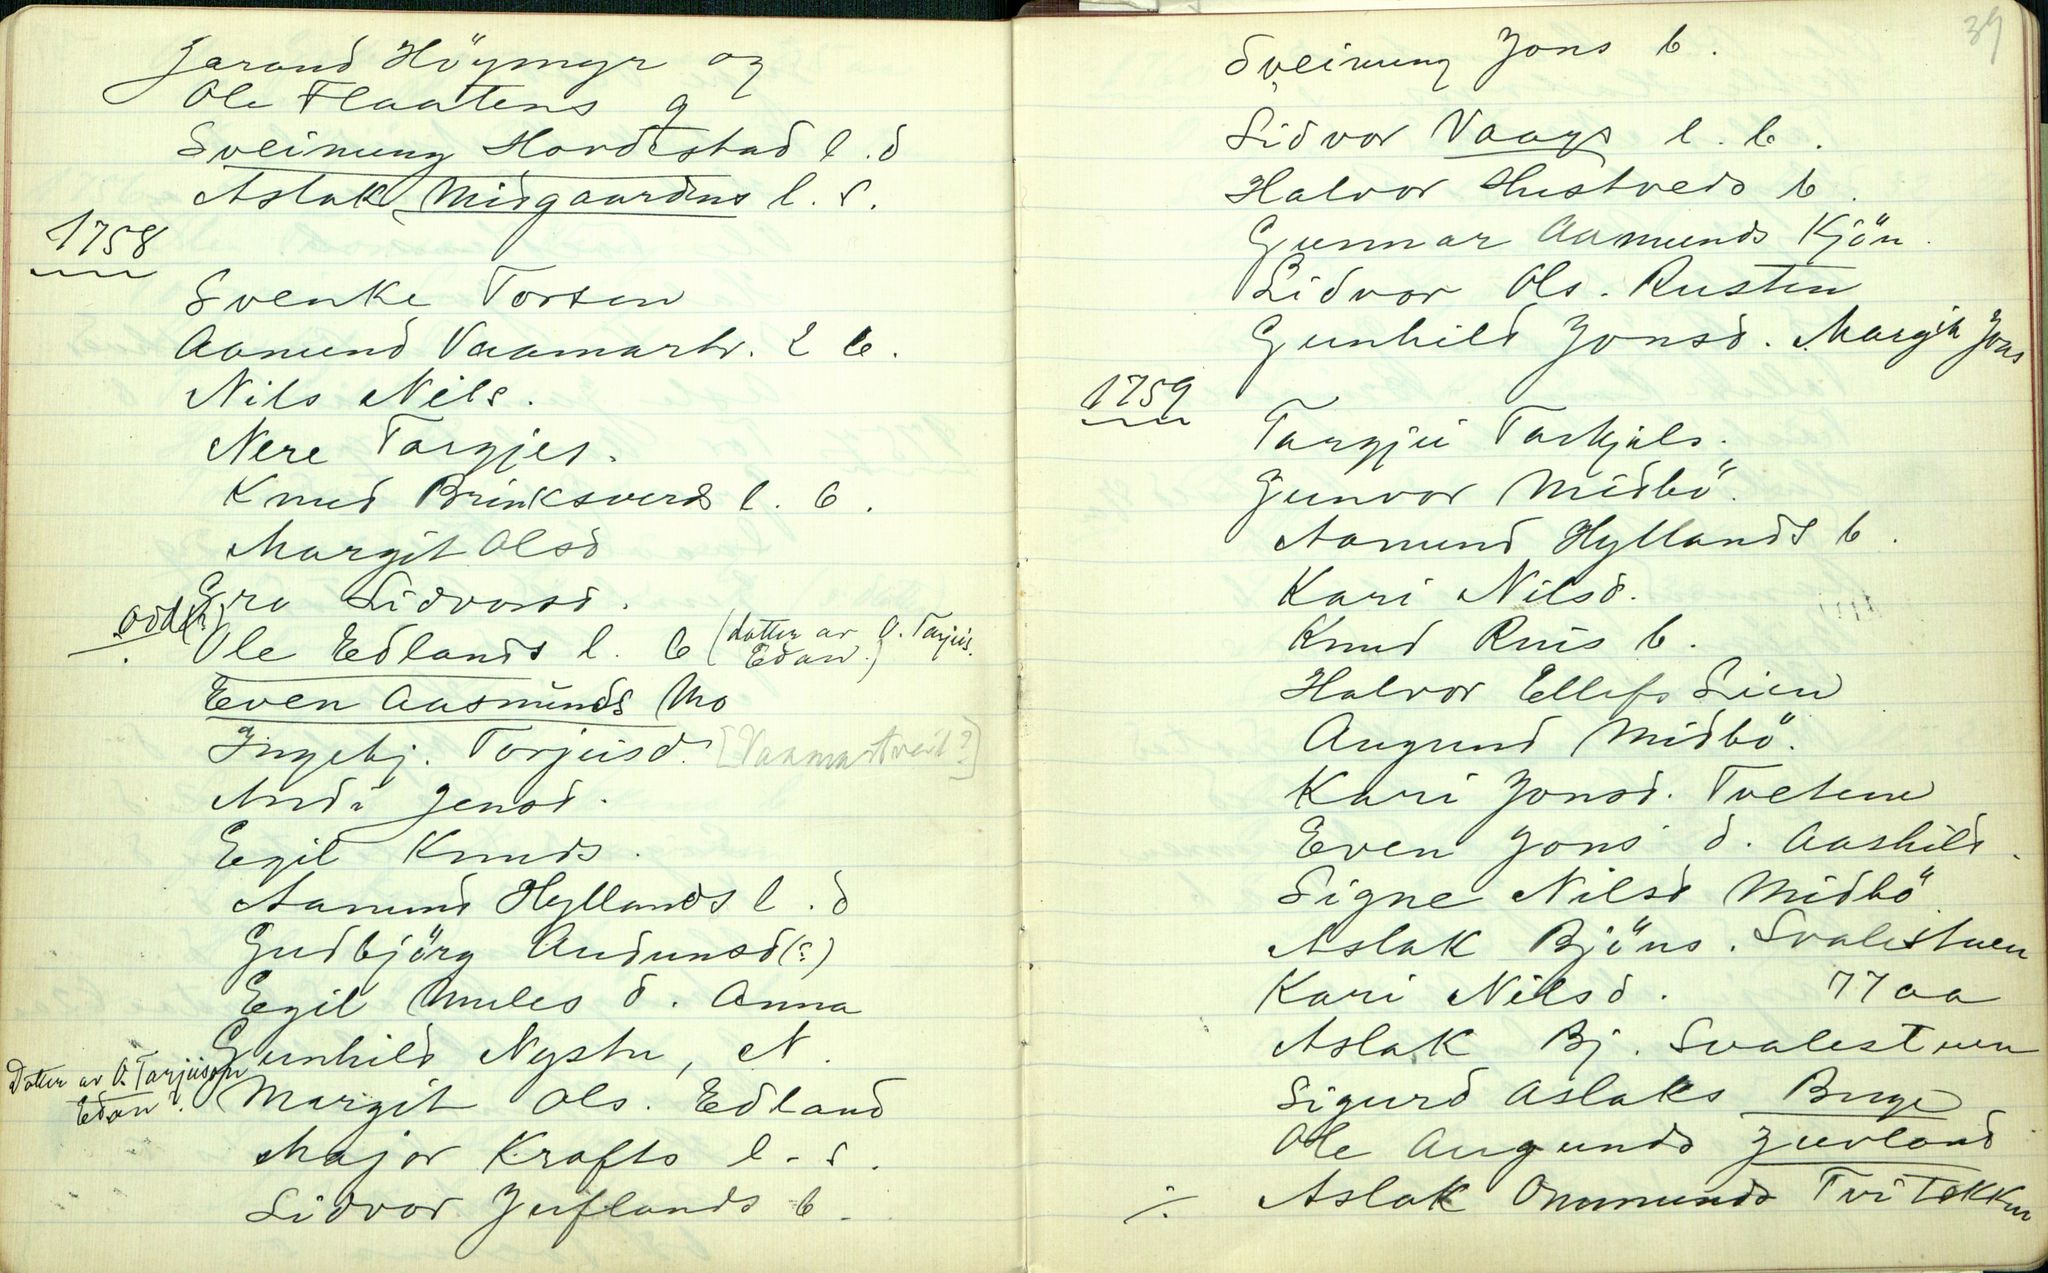 Jarand Höymyr og
Ole Flaatens g
Sveinung Hordestad l. d
Aslak Midgaardens l. s.
1758
Svenke Torsen
Aamund Vaamartv. l b.
Nils Nils.
Nere Targjes.
Knud Brinksverds l. b.
Margit Olsd
Gro Sidvorsd.
odd(?)
Ole Edlands l. b (datter av O. Tarjeis. Edan.)
Even Aasmunds Mo
Ingebj. Torjusd. [Vaamartveit?]
And. Jensd.
Egil Knuds.
Aamund Hyllands l. d
Gudbjörg Audunsd(?)
Egil Mules d. Anna
Gunhild Nystu, N.
Datter av O. Tarjeison Edan?
Margit Ols. Edland
Major Krafts l. s.
Sidvor Juflands b.
39
Sveinung Jons b.
Sidvor Vaags l. b.
Halvor Hustveds b.
Gunnar Aamunds Kjön.
Lidvor Ols. Rusten
Gunhild Jonsd. Margit Jons
1759
Targjei Torkjels.
Gunvor Midbö.
Aamund Hyllands b.
Kari Nilsd.
Knud Ruis b.
Halvor Ellefs Lien
Augund Midbö.
Kari Jonsd. Tveten
Even Jons d. Aashild.
Signe Nilsd Midbö
Aslak Bjöns. Svalestuen
Kari Nilsd. 77 aa
Aslak Bj. Svalestuen
Sigurd Aslaks Buge
Ole Augunds Juvland
÷ Aslak Ommunds Tvitekkn